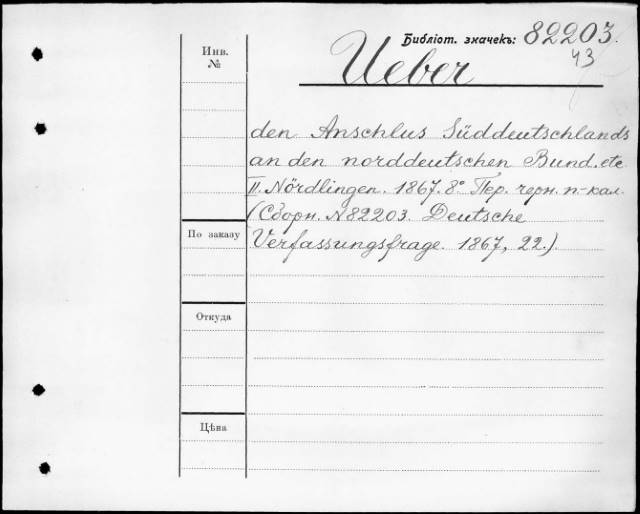 Библіот. значекъ: 82203.
43
Инв.
№
Ueber
den Anschlus Süddeutschlands
an den norddeutschen Bund. etc
II. Nördlingen. 1867. 8° Пер. черн. п-кал.
(Сборн. №82203. Deutsche
По заказу
Verfassungsfrage. 1867, 22.)
Откуда
Цѣна